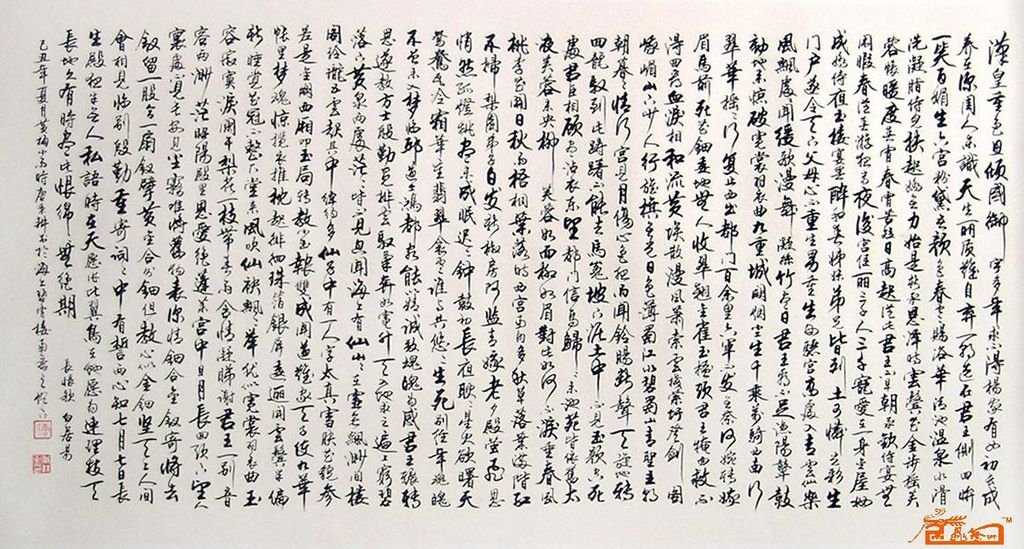 漢皇重色思傾國御宇多年求不得楊家有女初長成
養在深閨人未識天生麗質難自棄一朝選在君王側回眸
一笑百媚生六宮粉黛無顏色春寒賜浴華清池溫泉水滑
洗凝脂侍兒扶起嬌無力始是新承恩澤時雲鬢花顏金步搖芙
蓉帳暖度春宵春宵苦短日高起從此君王不早朝承歡侍宴無
閑暇春從春遊夜專夜後宮佳麗三千人三千寵愛在一身金屋妝
成嬌侍夜玉樓宴罷醉和春姊妹弟兄皆列土可憐光彩生
門戶遂令天下父母心不重生男重生女驪宮高處入青雲仙樂
風飄處處聞緩歌漫舞凝絲竹盡日君王看不足漁陽鼙鼓
動地來驚破霓裳羽衣曲九重城闕煙塵生千乘萬騎西南行
翠華搖搖行復止西出都門百餘里六軍不發無奈何宛轉蛾
眉馬前死花鈿委地無人收翠翹金雀玉搔頭君王掩面救不
得回看血淚相和流黃埃散漫風蕭索雲棧縈紆登劍閣
峨嵋山下少人行旌旗無光日色薄蜀江水碧蜀山青聖主朝
朝暮暮情行宮見月傷心色夜雨聞鈴腸斷聲天旋地轉
迴龍馭到此躊躇不能去馬嵬坡下泥土中不見玉顏空死
處君臣相顧盡沾衣東望都門信馬歸歸來池苑皆依舊太
液芙蓉未央柳芙蓉如面柳如眉對此如何不淚垂春風
桃李花開日秋雨梧桐葉落時西宮南內多秋草落葉滿階紅
不掃梨園弟子白髮新椒房阿監青娥老夕殿螢飛思
悄然孤燈挑盡未成眠遲遲鐘鼓初長夜耿耿星河欲曙天
鴛鴦瓦冷霜華重翡翠衾寒誰與共悠悠生死別經年魂魄
不曾來入夢臨邛道士鴻都客能以精誠致魂魄為感君王輾轉
思遂教方士殷勤覓排空馭氣奔如電升天入地求之遍上窮碧
落下黃泉兩處茫茫皆不見忽聞海上有仙山山在虛無縹渺間樓
閣玲瓏五雲起其中綽約多仙子中有一人字太真雪膚花貌參
差是金闕西廂叩玉扃轉教小玉報雙成聞道漢家天子使九華
帳裏夢魂驚攬衣推枕起徘徊珠箔銀屏迤邐開雲鬢半偏
新睡覺花冠不整下堂來風吹仙袂飄飄舉猶似霓裳羽衣舞玉
容寂寞淚闌干梨花一枝春帶雨含情凝睇謝君王一別音
容兩渺茫昭陽殿裏恩愛絕蓬萊宮中日月長回頭下望人
寰處不見長安見塵霧唯將舊物表深情鈿合金釵寄將去
釵留一股合一扇釵擘黃金合分鈿但教心似金鈿堅天上人間
會相見臨別殷勤重寄詞詞中有誓兩心知七月七日長
生殿夜半無人私語時在天願作比翼鳥在地願為連理枝天
長地久有時盡此恨綿綿無絕期 長恨歌 白居易
己丑年夏月